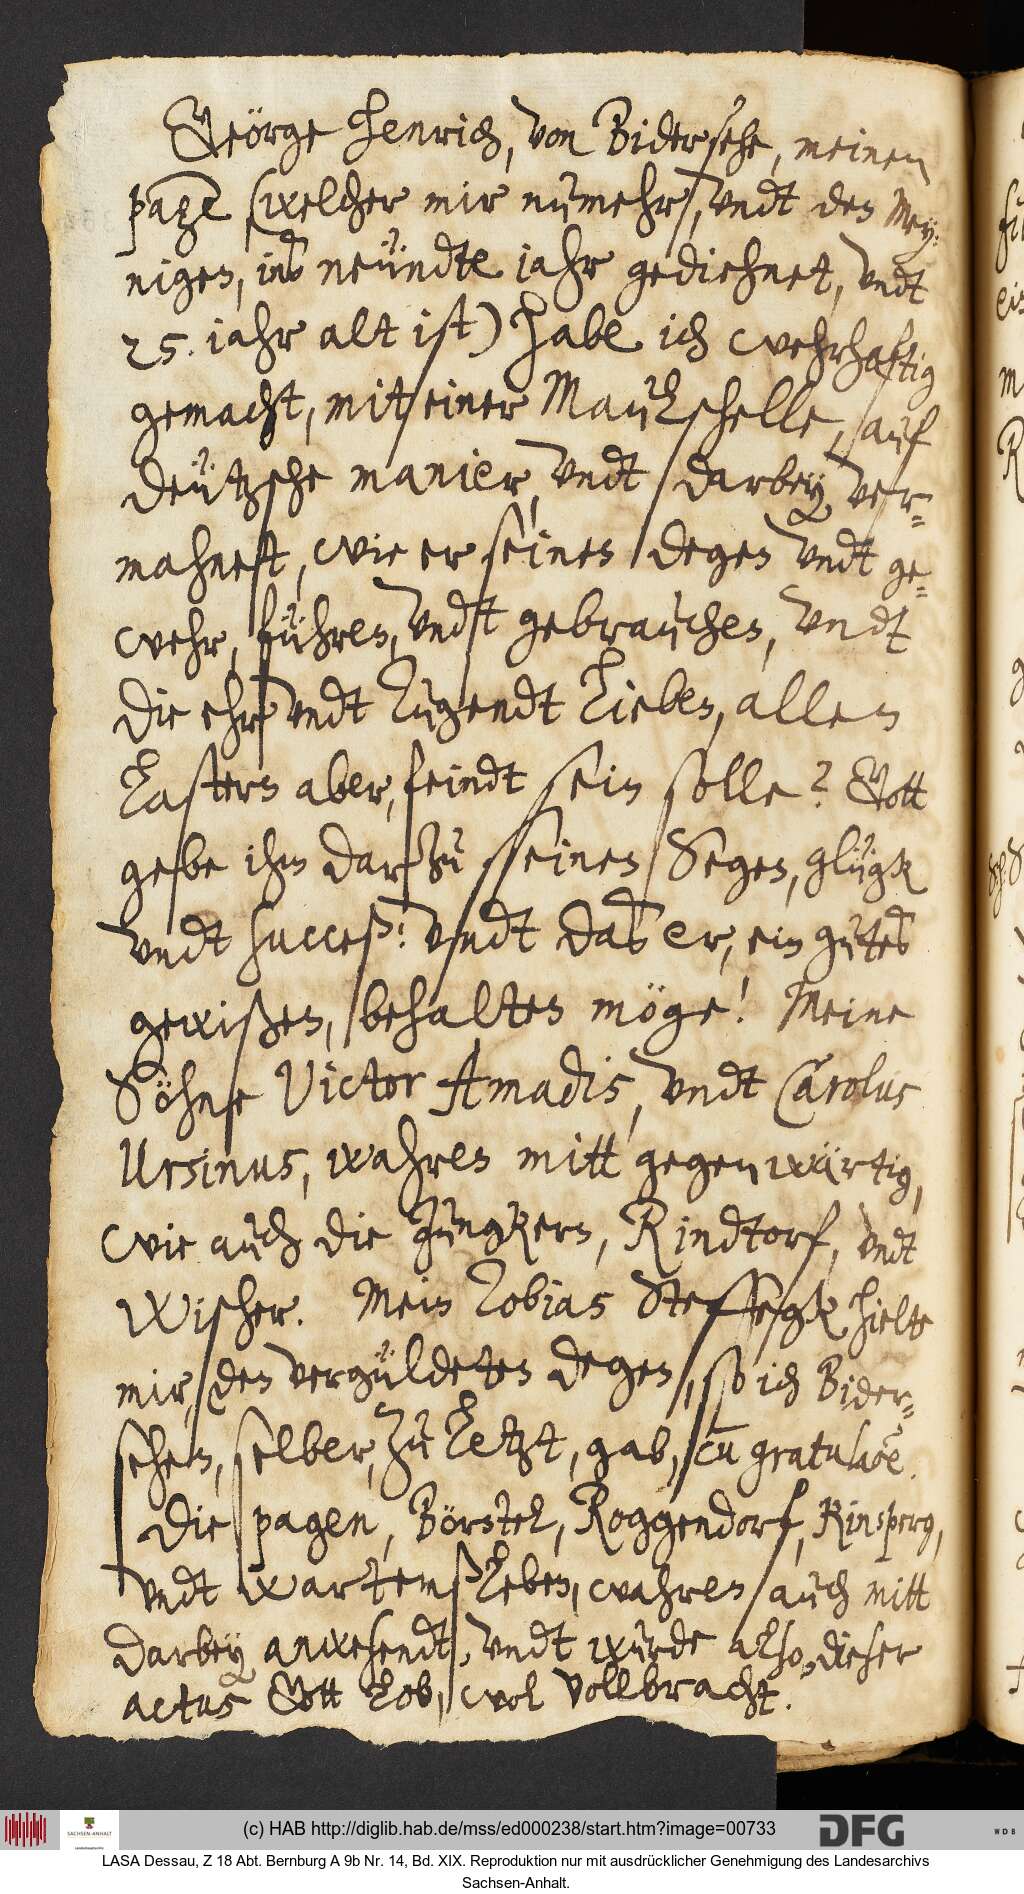 Geörge Henrich, von Bidersehe, meinen
page (welcher mir nu̍mehr, undt den Mey-
nigen, ins neu̍ndte jahr gediehnet, undt
25. jahr alt ist) habe ich wehrhaftig
gemacht, mit einer Mau̍lschelle, auf
deu̍tzsche manier, undt darbey ver-
mahnet, wie er seinen degen undt ge-
wehr, führen, undt gebrau̍chen, undt
die ehre undt Tu̍gendt lieben, allen
Lastern aber, feindt sein solle? Gott
gebe ihm darzu̍ seinen Segen, glu̍gk
undt succeß! undt das er, ein gu̍tes
gewißen, behalten möge! Meine
Söhne Victor Amadis, undt Carolus
Ursinus, wahren mitt gegenwärtig,
wie au̍ch die Ju̍ngkern, Rindtorf, undt
Wischer. Mein Tobias Steffegk hielte
mir, den vergu̍ldeten degen, so ich Bider-
sehen, selber, zu̍ letzt, gab, cu̅ gratula͠oe.
Die pagen, Börstel, Roggendorf, Kinsperg,
undt Wartemßleben, wahren au̍ch mitt
darbey anwesendt, undt wu̍rde also, dieser
actus Gott lob, wol vollbracht.
(c) HAB http://diglib.hab.de/mss/ed000238/start.htm?image=00733
SACHSEN-ANHALT
DFG
WDB
LASA Dessau, Z 18 Abt. Bernburg A 9b Nr. 14, Bd. XIX. Reproduktion nur mit ausdrücklicher Genehmigung des Landesarchivs
Sachsen-Anhalt.